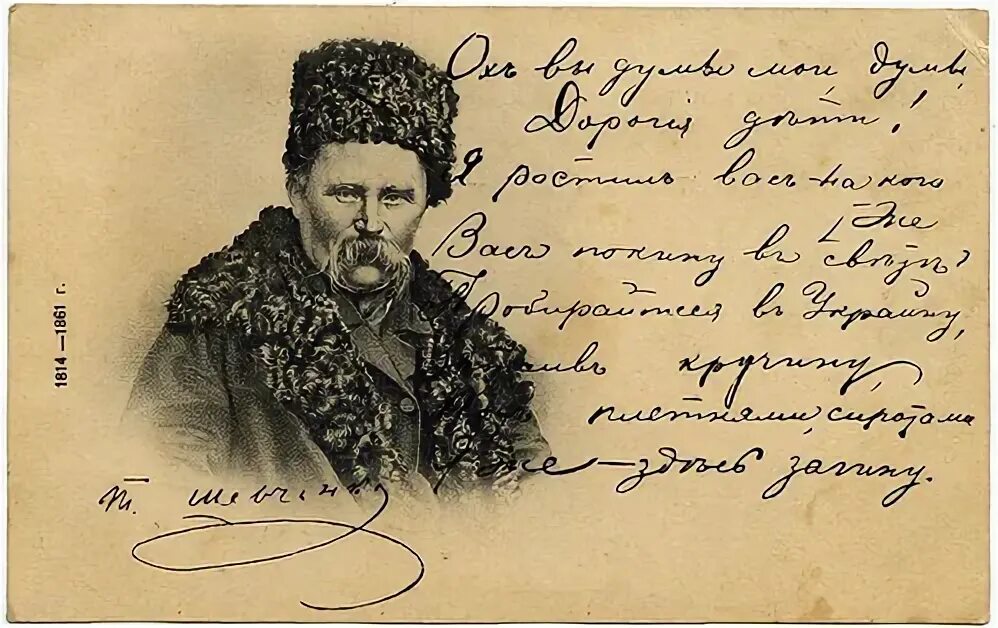 Охъ вы думы мои, думы,
Дорогія дѣти!
Я ростилъ васъ - на кого
[же
Васъ покину въ свѣтѣ?
Пробирайтеся въ Украйну,
кручину,
плетнями, сиротами
Я же — здѣсь загину.
Т. Шевченко
1814—1861 г.